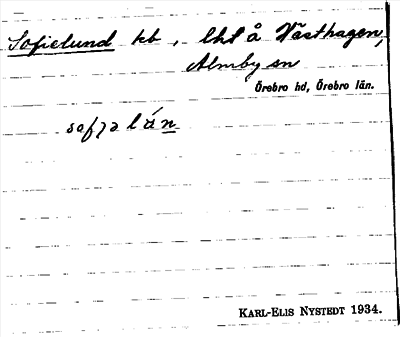 Sofielund kb, lht å Västhagen,
Almby sn
Örebro hd, Örebro län.
KARL-ELIS NYSTEDT 1934.